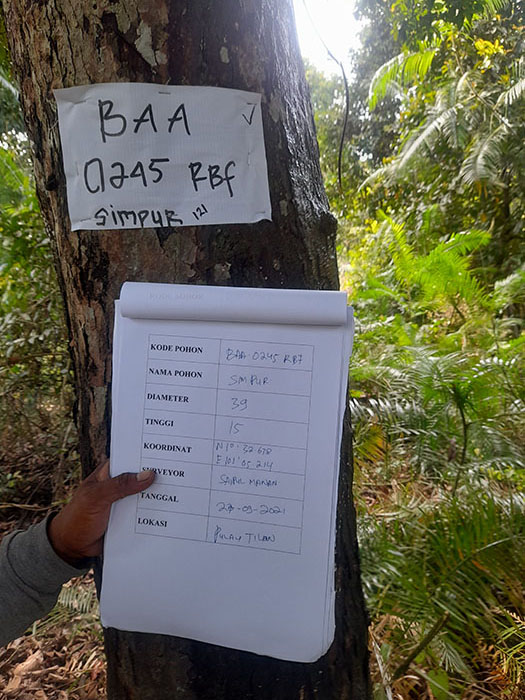 BAA
0245 RBf
Simpur 121
KODE POHON
KODE POHON BAA 0245 RBf
NAMA POHON SIMPUR
DIAMETER 39
TINGGI 15
KOORDINAT N 1°: 32 678
E 101° 05 214
SURVEYOR
TANGGAL 27-03-2021
LOKASI PULAU TILAN